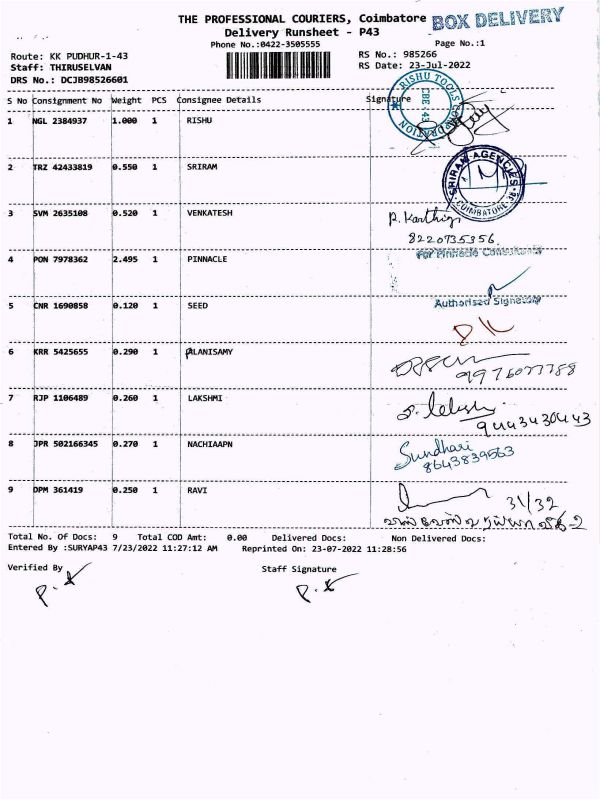 THE PROFESSIONAL COURIERS, Coimbatore
BOX DELIVERY
Delivery Runsheet - P43
Phone No.:0422-3505555
Page No.:1
Route: KK PUDHUR-1-43
RS No.: 985266
Staff: THIRUSELVAN
RS Date: 23-Jul-2022
DRS No.: DCJB98526601
S No Consignment No Weight PCS Consignee Details Signature
RISHU TOOLS CORPORATION
CBE 43
1 NGL 2384937 1.000 1 RISHU
2 TRZ 42433819 0.550 1 SRIRAM
SRIRAM AGENCIES
COIMBATORE
3 SVM 2635108 0.520 1 VENKATESH
P. Karthig
8220735356
4 PON 7978362 2.495 1 PINNACLE
For Pinnacle Consultants
Authorised Signatory
5 CNR 1690858 0.120 1 SEED
6 KRR 5425655 0.290 1 PALANISAMY
7 RJP 1106489 0.260 1 LAKSHMI
9443430443
8 JPR 502166345 0.270 1 NACHIAAPN
Sundhari
8643839563
9 DPM 361419 0.250 1 RAVI
31/32
Total No. Of Docs: 9 Total COD Amt: 0.00 Delivered Docs: Non Delivered Docs:
Entered By :SURYAP43 7/23/2022 11:27:12 AM Reprinted On: 23-07-2022 11:28:56
Verified By Staff Signature